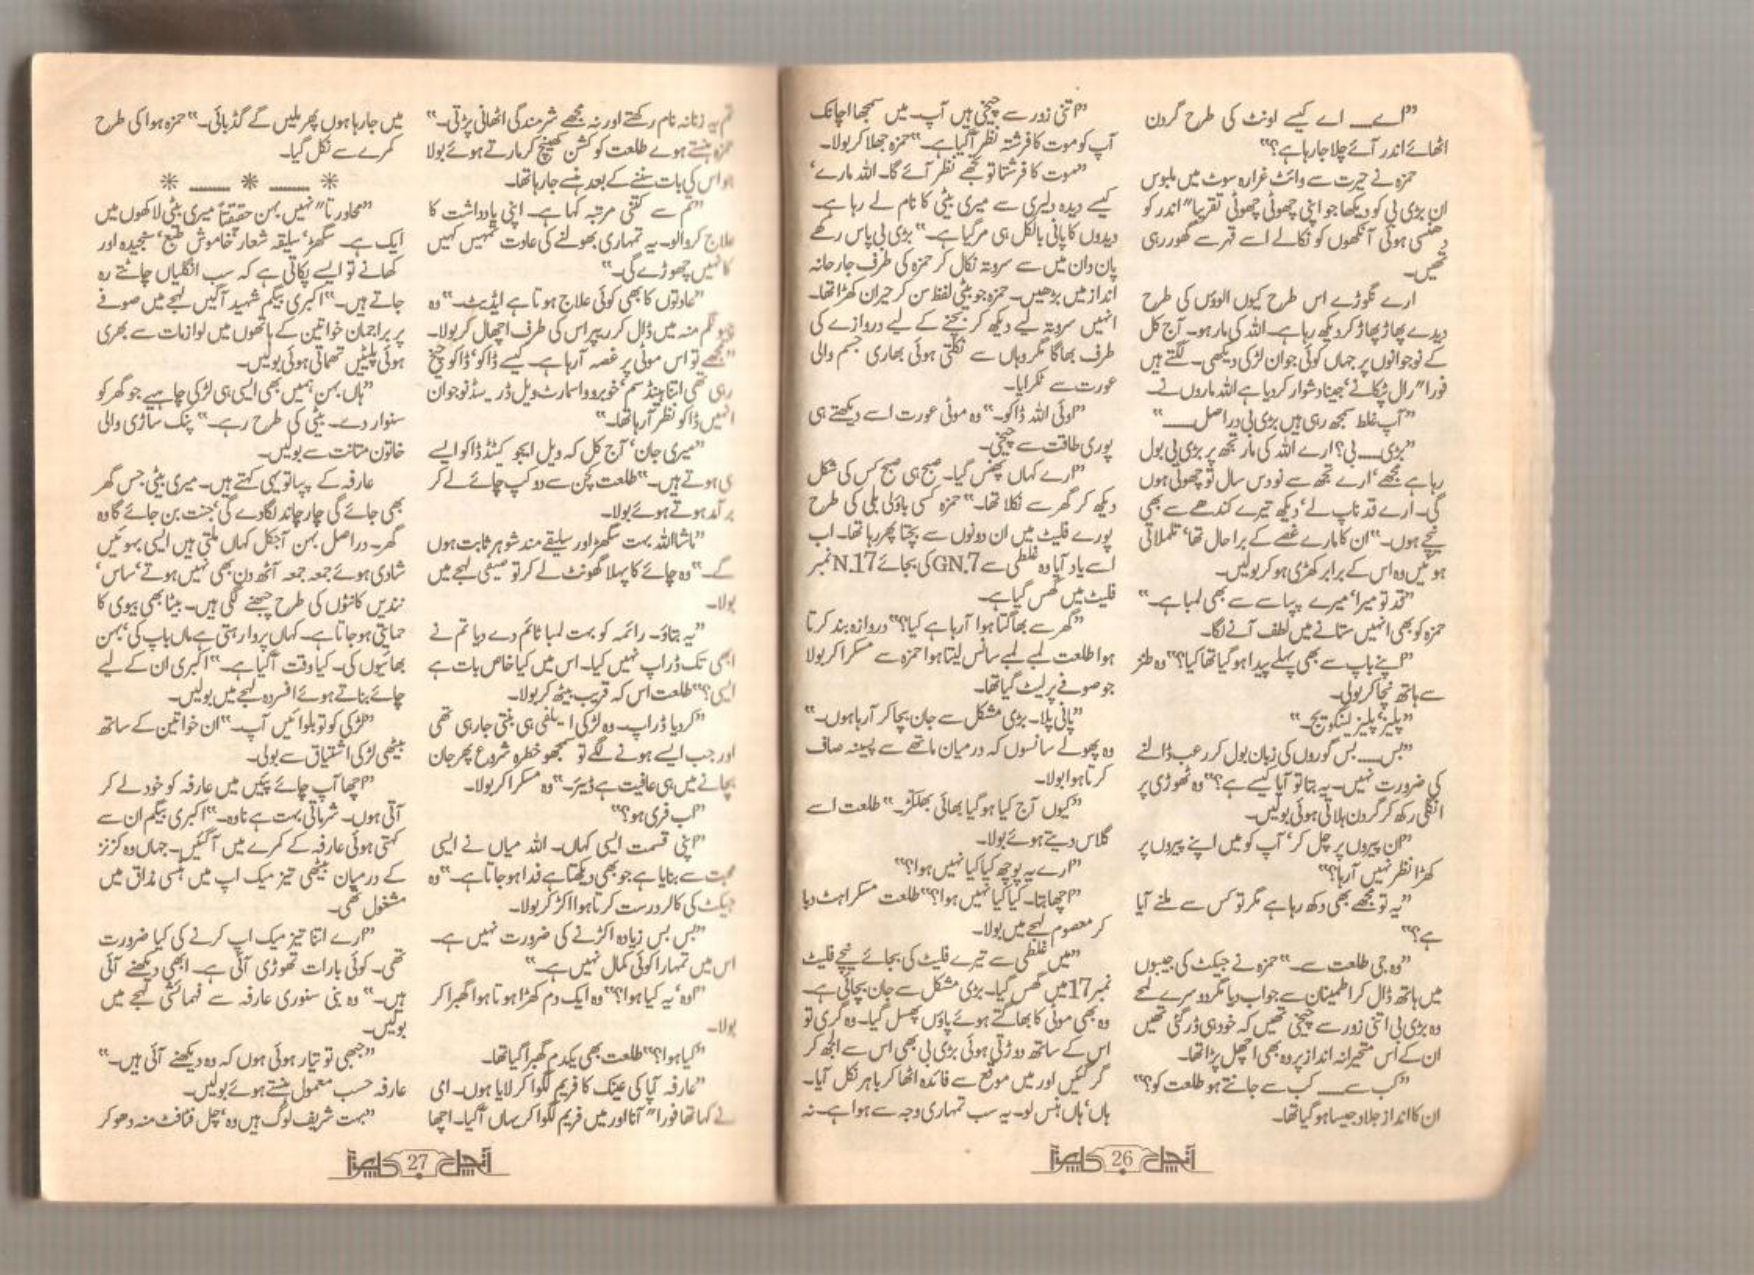 ”اے۔۔۔۔ اے کیسے اونٹ کی طرح گردن
اٹھائے اندر آئے چلا جا رہا ہے؟“
حمزہ نے حیرت سے وائٹ غرارہ سوٹ میں ملبوس
ان بڑی بی کو دیکھا جو اپنی چھوٹی چھوٹی تقریبا″ اندر کو
دھنسی ہوئی آنکھوں کو نکالے اسے قہر سے گھور رہی
تھیں۔
ارے نگوڑے اس طرح کیوں الوؤں کی طرح
دیدے پھاڑ پھاڑ کر دیکھ رہا ہے۔ اللہ کی مار ہو۔ آج کل
کے نوجوانوں پر جہاں کوئی جوان لڑکی دیکھی۔ لگتے ہیں
فورا″ رال ٹپکانے‘ جینا دشوار کر دیا ہے اللہ ماروں نے۔
”آپ غلط سمجھ رہی ہیں بڑی بی دراصل۔۔۔۔“
”بڑی۔۔۔۔ بی؟ ارے اللہ کی مار تجھ پر بڑی بی بول
رہا ہے مجھے‘ ارے تجھ سے نو دس سال تو چھوٹی ہوں
گی۔ ارے قد ناپ لے‘ دیکھ تیرے کندھے سے بھی
نیچے ہوں۔“ ان کا مارے غصے کے برا حال تھا‘ تلملاتی
ہوئیں وہ اس کے برابر کھڑی ہو کر بولیں۔
”قد تو میرا‘ میرے پپا سے بھی لمبا ہے۔“
حمزہ کو بھی انہیں ستانے میں لطف آنے لگا۔
”اپنے باپ سے بھی پہلے پیدا ہو گیا تھا کیا؟“ وہ طنز
سے ہاتھ نچا کر بولی۔
”پلیز‘ پلیز لینگویج۔“
”بس۔۔۔۔ بس گوروں کی زبان بول کر رعب ڈالنے
کی ضرورت نہیں۔ یہ بتا تو آیا کیسے ہے؟“ وہ ٹھوڑی پر
انگلی رکھ کر گردن ہلاتی ہوئی بولیں۔
”ان پیروں پر چل کر‘ آپ کو میں اپنے پیروں پر
کھڑا نظر نہیں آ رہا؟“
”یہ تو مجھے بھی دکھ رہا ہے مگر تو کس سے ملنے آیا
ہے؟“
”وہ جی طلعت سے۔“ حمزہ نے جیکٹ کی جیبوں
میں ہاتھ ڈال کر اطمینان سے جواب دیا مگر دوسرے لمحے
وہ بڑی بی اتنی زور سے چیخی تھیں کہ خود ہی ڈر گئی تھیں
ان کے اس متحیرانہ انداز پر وہ بھی اچھل پڑا تھا۔
”کب سے۔۔۔۔ کب سے جانتے ہو طلعت کو؟“
ان کا انداز جلاد جیسا ہو گیا تھا۔
”اتنی زور سے چیخی ہیں آپ۔ میں سمجھا اچانک
آپ کو موت کا فرشتہ نظر آ گیا ہے۔“ حمزہ جھلا کر بولا۔
”موت کا فرشتا تو تجھے نظر آئے گا۔ اللہ مارے‘
کیسے دیدہ دلیری سے میری بیٹی کا نام لے رہا ہے۔
دیدوں کا پانی بالکل ہی مر گیا ہے۔“ بڑی بی پاس رکھے
پان دان میں سے سروتہ نکال کر حمزہ کی طرف جارحانہ
انداز میں بڑھیں۔ حمزہ جو بیٹی لفظ سن کر حیران کھڑا تھا۔
انہیں سروتہ لیے دیکھ کر بچنے کے لیے دروازے کی
طرف بھاگا مگر وہاں سے نکلتی ہوئی بھاری جسم والی
عورت سے ٹکرایا۔
”اوئی اللہ ڈاکو۔“ وہ موٹی عورت اسے دیکھتے ہی
پوری طاقت سے چیخی۔
”ارے کہاں پھنس گیا۔ صبح ہی صبح کس کی شکل
دیکھ کر گھر سے نکلا تھا۔“ حمزہ کسی باؤلی بلی کی طرح
پورے فلیٹ میں ان دونوں سے بچتا پھر رہا تھا۔ اب
اسے یاد آیا وہ غلطی سے GN.7 کی بجائے N.17 نمبر
فلیٹ میں گھس گیا ہے۔
”گھر سے بھاگتا ہوا آ رہا ہے کیا؟“ دروازہ بند کرتا
ہوا طلعت لمبے لمبے سانس لیتا ہوا حمزہ سے مسکرا کر بولا
جو صوفے پر لیٹ گیا تھا۔
”پانی پلا۔ بڑی مشکل سے جان بچا کر آ رہا ہوں۔“
وہ پھولے سانسوں کہ درمیان ماتھے سے پسینہ صاف
کرتا ہوا بولا۔
”کیوں آج کیا ہو گیا بھائی بھلکڑ۔“ طلعت اسے
گلاس دیتے ہوئے بولا۔
”ارے یہ پوچھ کیا کیا نہیں ہوا؟“
”اچھا بتا۔ کیا کیا نہیں ہوا؟“ طلعت مسکراہٹ دبا
کر معصوم لہجے میں بولا۔
”میں غلطی سے تیرے فلیٹ کی بجائے نیچے فلیٹ
نمبر 17 میں گھس گیا۔ بڑی مشکل سے جان بچائی ہے۔
وہ بھی موٹی کا بھاگتے ہوئے پاؤں پھسل گیا۔ وہ گری تو
اس کے ساتھ دوڑتی ہوئی بڑی بی بھی اس سے الجھ کر
گر گئیں اور میں موقع سے فائدہ اٹھا کر باہر نکل آیا۔
ہاں‘ ہاں ہنس لو۔ یہ سب تمہاری وجہ سے ہوا ہے۔ نہ
آنچل 26 کراچی
تم یہ زنانہ نام رکھتے اور نہ مجھے شرمندگی اٹھانی پڑتی۔“
حمزہ ہنستے ہوے طلعت کو کشن کھینچ کر مارتے ہوئے بولا
جو اس کی بات سننے کے بعد ہنسے جا رہا تھا۔
”تم سے کتنی مرتبہ کہا ہے۔ اپنی یادداشت کا
علاج کروالو۔ یہ تمہاری بھولنے کی عادت تمہیں کہیں
کا نہیں چھوڑے گی۔“
”عادتوں کا بھی کوئی علاج ہوتا ہے ایڈیٹ۔“ وہ
چیونگم منہ میں ڈال کر ریپر اس کی طرف اچھال کر بولا۔
”مجھے تو اس موٹی پر غصہ آ رہا ہے۔ کیسے ڈاکو‘ ڈاکو چیخ
رہی تھی اتنا ہینڈسم‘ خوبرو و اسمارٹ ویل ڈریسڈ نوجوان
انہیں ڈاکو نظر آ رہا تھا۔“
”میری جان‘ آج کل کہ ویل ایجوکیٹڈ ڈاکو ایسے
ہی ہوتے ہیں۔“ طلعت کچن سے دو کپ چائے لے کر
برآمد ہوتے ہوئے بولا۔
”ماشااللہ بہت سگھڑ اور سلیقے مند شوہر ثابت ہوں
گے۔“ وہ چائے کا پہلا گھونٹ لے کر توصیفی لہجے میں
بولا۔
”یہ بتاؤ۔ رائمہ کو بہت لمبا ٹائم دے دیا تم نے
ابھی تک ڈراپ نہیں کیا۔ اس میں کیا خاص بات ہے
ایسی؟“ طلعت اس کہ قریب بیٹھ کر بولا۔
”کر دیا ڈراپ۔ وہ لڑکی ایلفی ہی بنتی جا رہی تھی
اور جب ایسے ہونے لگے تو سمجھو خطرہ شروع پھر جان
بچانے میں ہی عافیت ہے ڈیئر۔“ وہ مسکرا کر بولا۔
”اب فری ہو؟“
”اپنی قسمت ایسی کہاں۔ اللہ میاں نے ایسی
محبت سے بنایا ہے جو بھی دیکھتا ہے فدا ہو جاتا ہے۔“ وہ
جیکٹ کی کالر درست کرتا ہوا اکڑ کر بولا۔
”بس بس زیادہ اکڑنے کی ضرورت نہیں ہے۔
اس میں تمہارا کوئی کمال نہیں ہے۔“
”اوہ‘ یہ کیا ہوا؟“ وہ ایک دم کھڑا ہوتا ہوا گھبرا کر
بولا۔
”کیا ہوا؟“ طلعت بھی یکدم گھبرا گیا تھا۔
”عارفہ آپا کی عینک کا فریم لگوا کر لایا ہوں۔ امی
نے کہا تھا فورا″ آنا اور میں فریم لگوا کر یہاں آ گیا۔ اچھا
میں جا رہا ہوں پھر ملیں گے گڈ بائی۔“ حمزہ ہوا کی طرح
کمرے سے نکل گیا۔
* ـــــ * ـــــ *
”محاورتا″ نہیں بہن حقیقتاً میری بیٹی لاکھوں میں
ایک ہے۔ سگھڑ‘ سلیقہ شعار‘ خاموش طبع‘ سنجیدہ اور
کھانے تو ایسے پکاتی ہے کہ سب انگلیاں چاٹتے رہ
جاتے ہیں۔“ اکبری بیگم شہد آگیں لہجے میں صوفے
پر براجمان خواتین کے ہاتھوں میں لوازمات سے بھری
ہوئی پلیٹیں تھماتی ہوئی بولیں۔
”ہاں بہن‘ ہمیں بھی ایسی ہی لڑکی چاہیے جو گھر کو
سنوار دے۔ بیٹی کی طرح رہے۔“ پنک ساڑی والی
خاتون متانت سے بولیں۔
عارفہ کے پپا تو یہی کہتے ہیں۔ میری بیٹی جس گھر
بھی جائے گی چار چاند لگا دے گی‘ جنت بن جائے گا وہ
گھر۔ دراصل بہن آجکل کہاں ملتی ہیں ایسی بہوئیں
شادی ہوئے جمعہ جمعہ آٹھ دن بھی نہیں ہوتے‘ ساس‘
نندیں کانٹوں کی طرح چبھنے لگی ہیں۔ بیٹا بھی بیوی کا
حمایتی ہو جاتا ہے۔ کہاں پروا رہتی ہے ماں باپ کی‘ بہن
بھائیوں کی۔ کیا وقت آ گیا ہے۔“ اکبری ان کے لیے
چائے بناتے ہوئے افسردہ لہجے میں بولیں۔
”لڑکی کو تو بلوائیں آپ۔“ ان خواتین کے ساتھ
بیٹھی لڑکی اشتیاق سے بولی۔
”اچھا آپ چائے پئیں میں عارفہ کو خود لے کر
آتی ہوں۔ شرماتی بہت ہے نا وہ۔“ اکبری بیگم ان سے
کہتی ہوئی عارفہ کے کمرے میں آ گئیں۔ جہاں وہ کزنز
کے درمیان بیٹھی تیز میک اپ میں ہنسی مذاق میں
مشغول تھی۔
”ارے اتنا تیز میک اپ کرنے کی کیا ضرورت
تھی۔ کوئی بارات تھوڑی آئی ہے۔ ابھی دیکھنے آئی
ہیں۔“ وہ بنی سنوری عارفہ سے فہمائشی لہجے میں
بولیں۔
”جبھی تو تیار ہوئی ہوں کہ وہ دیکھنے آئی ہیں۔“
عارفہ حسب معمول ہنستے ہوئے بولیں۔
”بہت شریف لوگ ہیں وہ‘ چل فٹافٹ منہ دھو کر
آنچل 27 کراچی